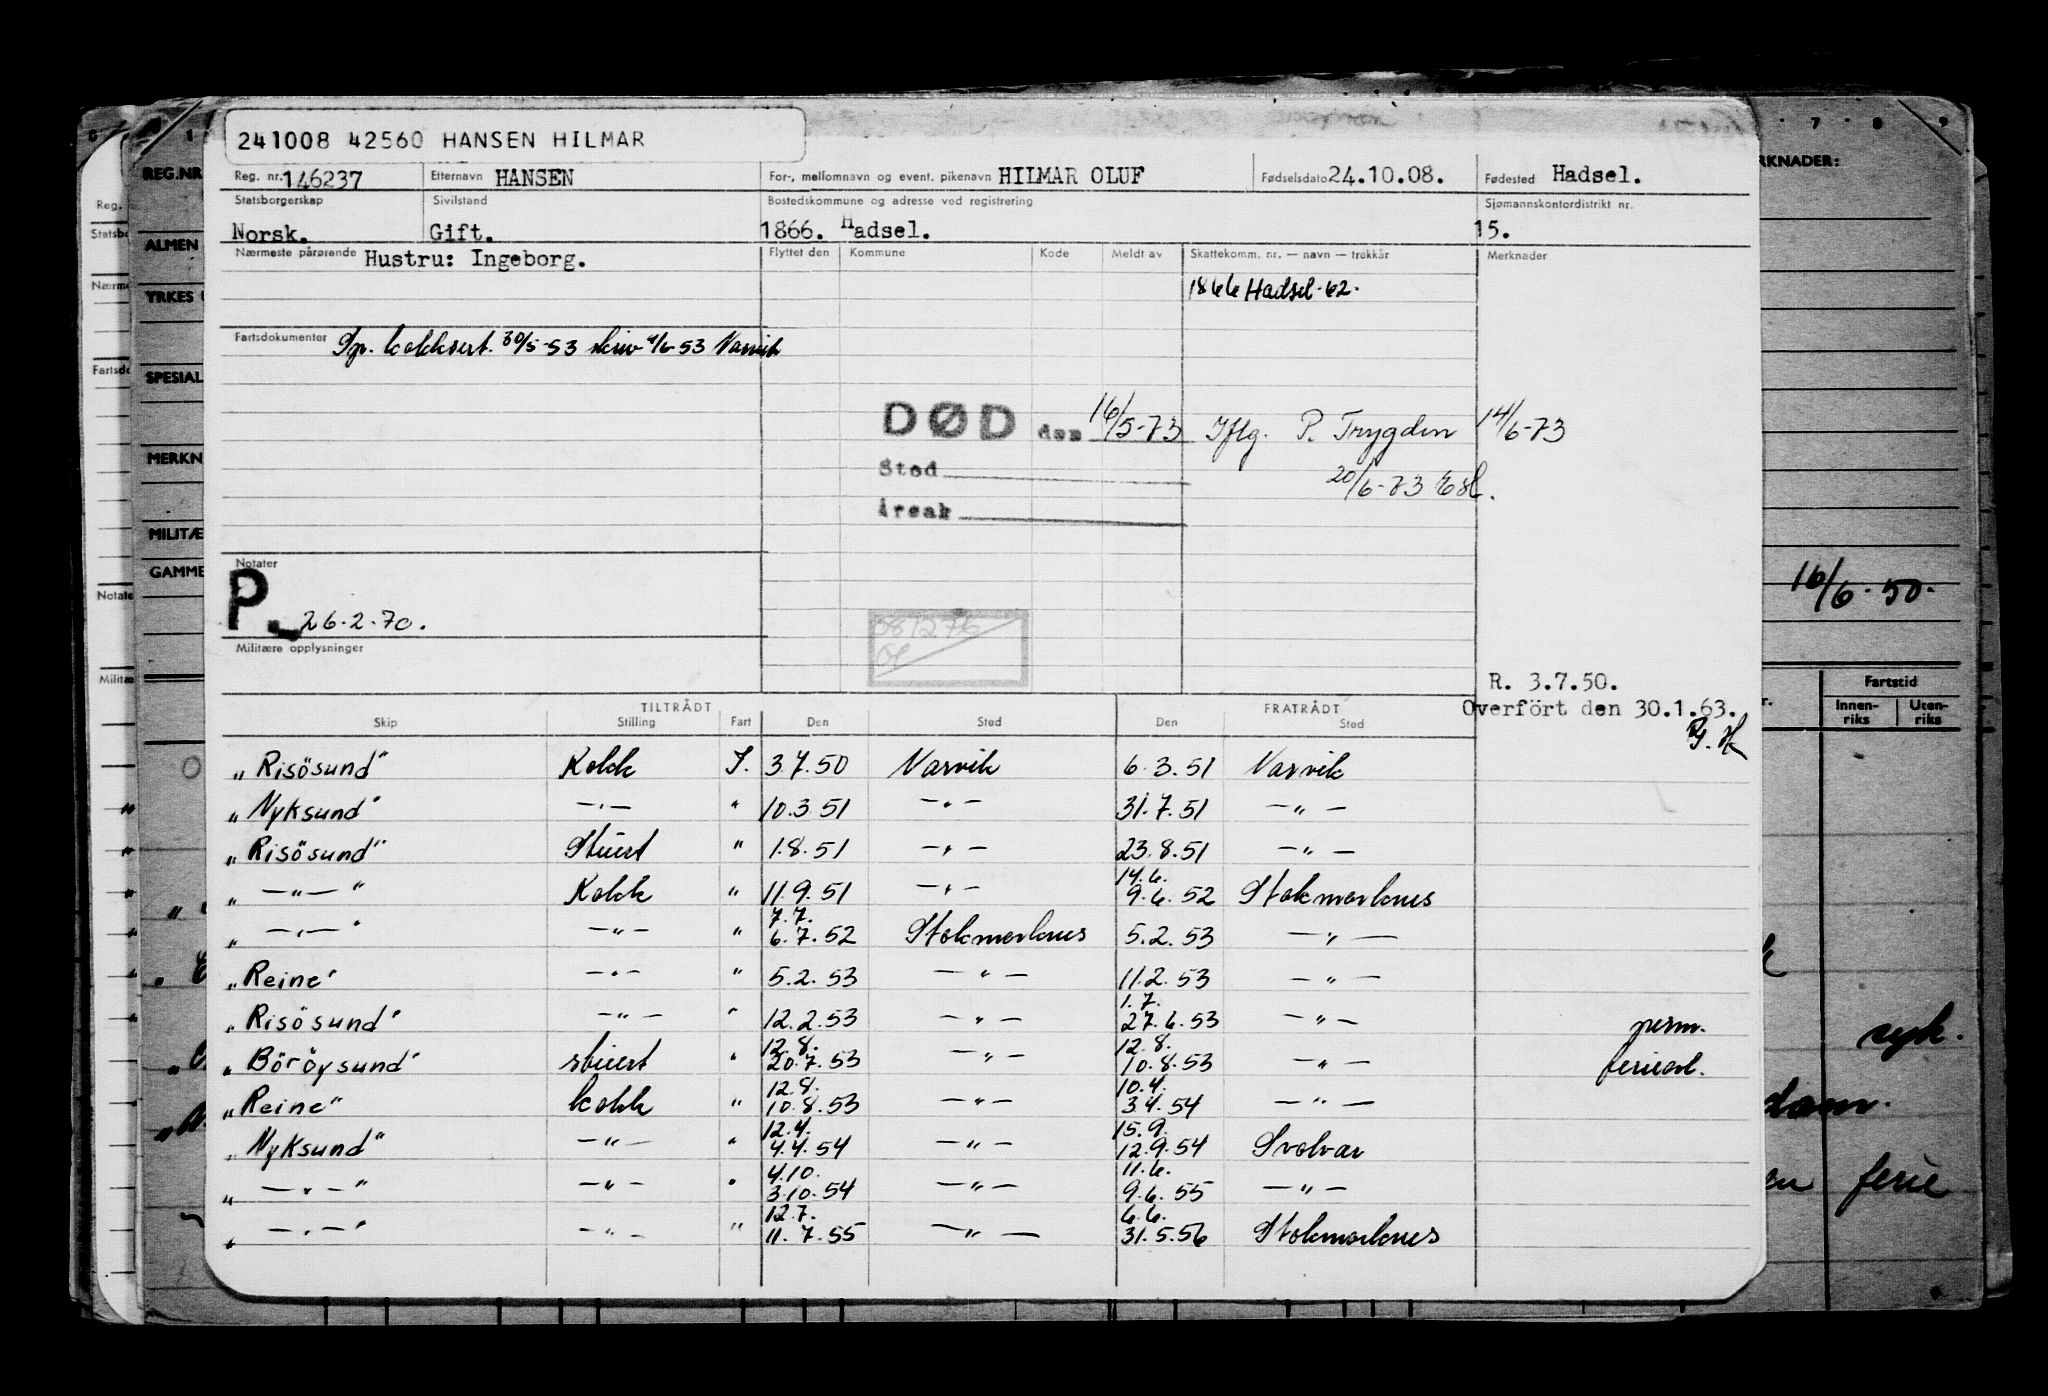 241008 42560 HANSEN HILMAR
Reg. nr. 146237 Etternavn HANSEN For-, mellomnavn og event. pikenavn HILMAR OLUF Fødselsdato 24.10.08. Fødested Hadsel.
Statsborgerskap Sivilstand Bostedskommune og adresse ved registrering Sjømannskontordistrikt nr.
Norsk. Gift. 1866. Hadsel. 15.
Nærmeste pårørende Hustru: Ingeborg. Flyttet den Kommune Kode Meldt av Skattekomm. nr. — navn — trekkår Merknader
1866 Hadsel-62.
Fartsdokumenter Dp. kokksert. 30/5-53 4/6-53 Narvik
DØD den 16/5-73 Iflg. P. Trygden 14/6-73
Sted 20/6-73
Årsak
Notater
P. 26.2.70.
Militære opplysninger
081276
R. 3.7.50.
Overfört den 30.1.63.
TILTRÅDT FRATRÅDT
Skip Stilling Fart Den Sted Den Sted
„Risösund" Kokk I. 3.7.50 Narvik 6.3.51 Narvik
„Nyksund" —"— " 10.3.51 —"— 31.7.51 —"—
„Risösund" Stuert " 1.8.51 —"— 23.8.51 —"—
14.6.
„—"—" Kokk " 11.9.51 —"— 9.6.52 Stokmarknes
7.7.
„—"—" —"— " 6.7.52 Stokmarknes 5.2.53 —"—
„Reine" —"— " 5.2.53 —"— 11.2.53 —"—
1.7.
„Risösund" —"— " 12.2.53 —"— 27.6.53 —"— perm.
12.8. 12.8.
„Böröysund" stuert " 20.7.53 —"— 10.8.53 —"— ferieavl.
12.8. 10.4.
„Reine" kokk " 10.8.53 —"— 3.4.54 —"—
12.4. 15.9.
„Nyksund" —"— " 4.4.54 —"— 12.9.54 Svolvær
4.10. 11.6.
„—"—" —"— " 3.10.54 —"— 9.6.55 —"—
12.7. 6.6.
„—"—" —"— " 11.7.55 —"— 31.5.56 Stokmarknes
REG.NR
ALMEN
YRKES
SPESIAL
MERKN
MILITÆ
GAMME
Reg.
Statsbo
Nærme
Fartsdo
Notate
Militæ
7 8 9
RKNADER:
16/6.50.
Fartstid
Innen-riks Uten-riks
syk.
ferie